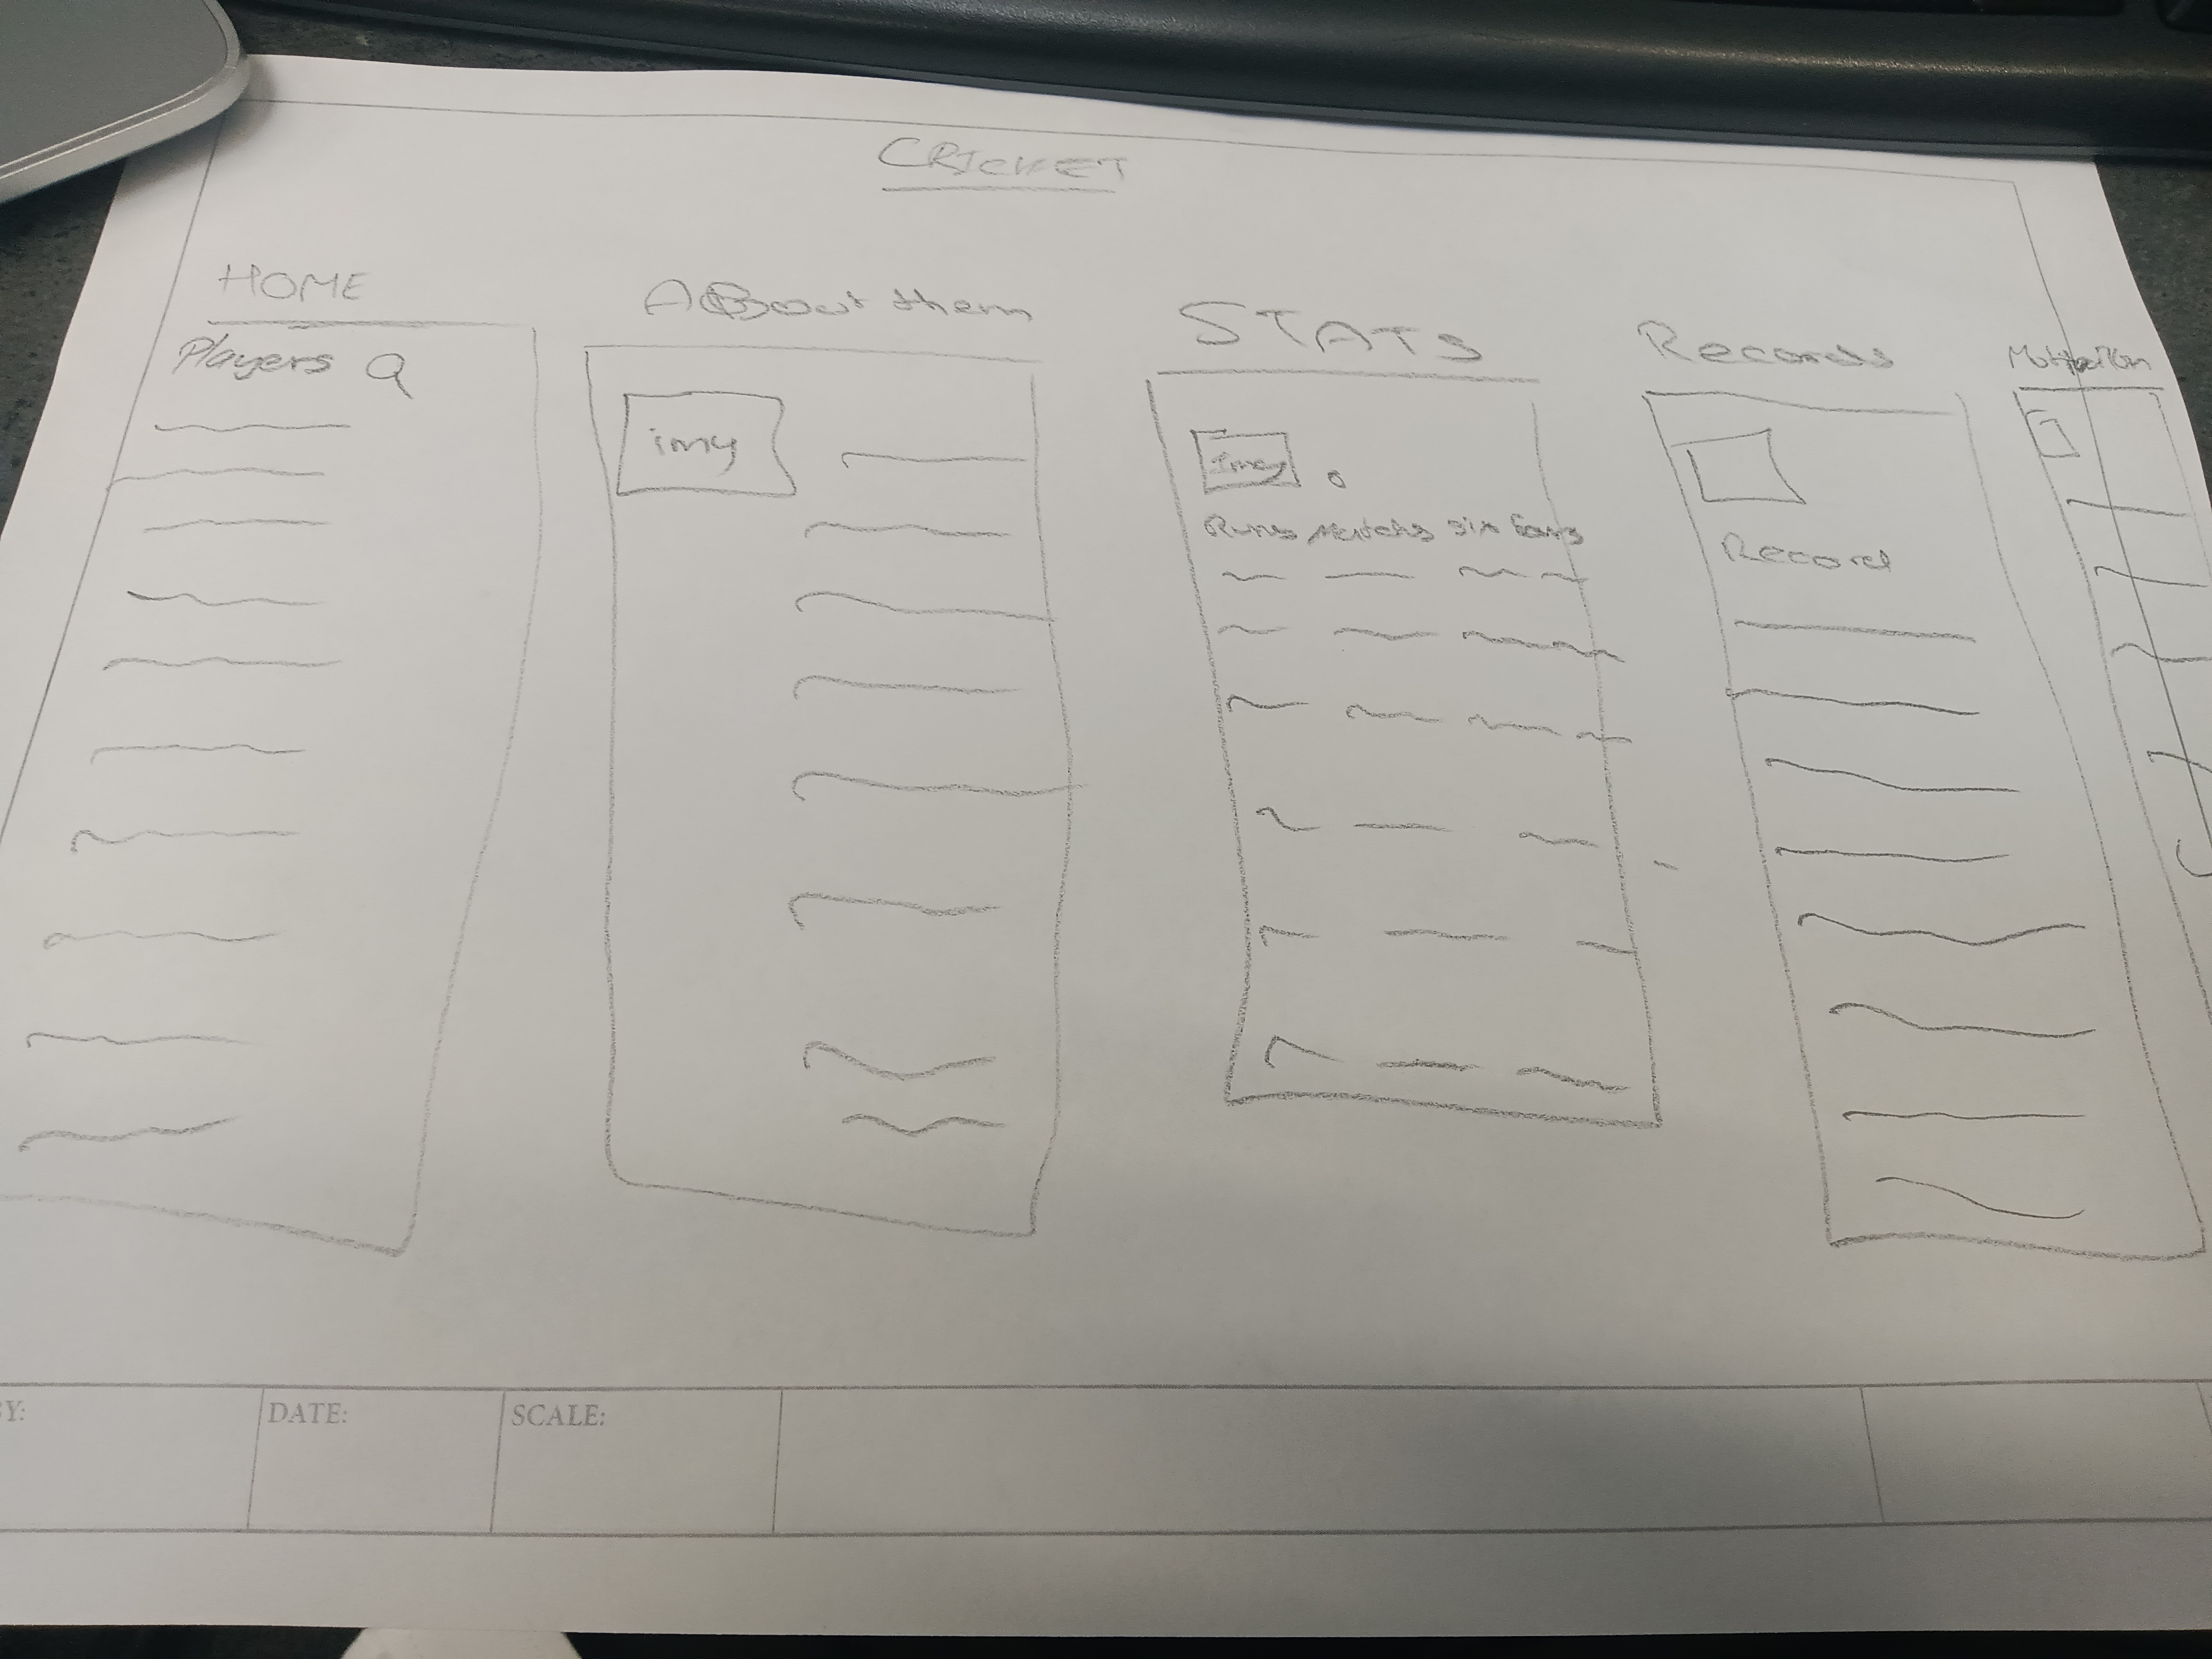 CRICKET
HOME
Players
About them
img
STATS
Img
Runs Matchs six fours
Records
Record
BY:
DATE:
SCALE: